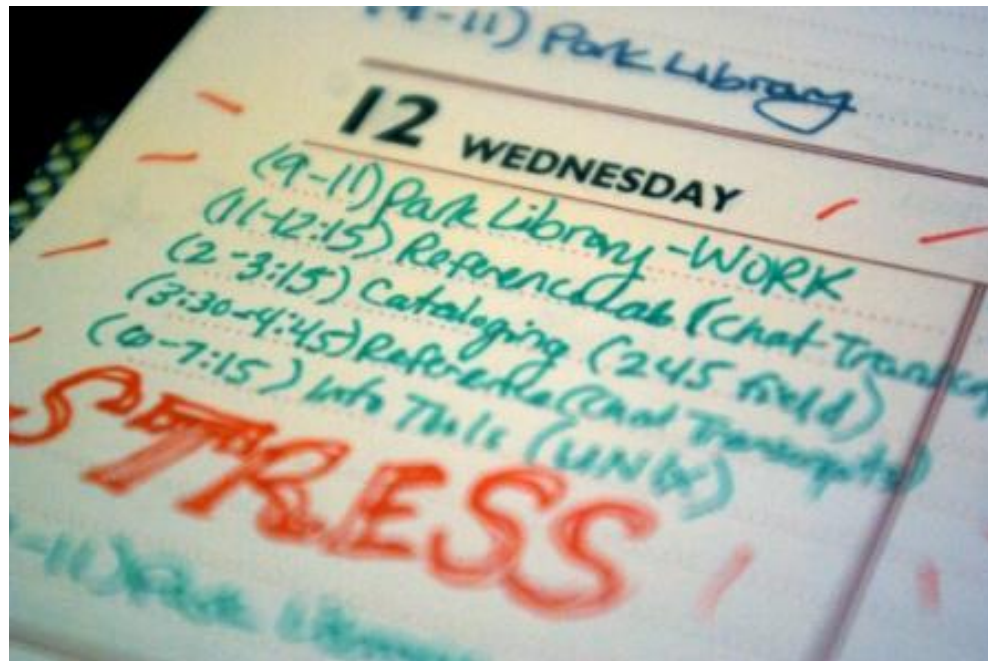 (9-11) Park Library
12 WEDNESDAY
(9-11) Park Library - WORK
(11-12:15) Reference Lab (Chat
(2-3:15) Cataloging (245 field)
(3:30-4:45) Reference (Chat Transcripts)
(6-7:15) Info Tools (UNIX)
STRESS
-11) Park Library